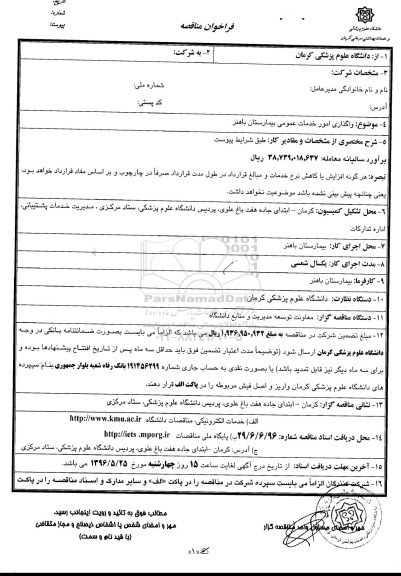 تاریخ:
شماره:
پیوست:
دانشگاه علوم پزشکی
و خدمات بهداشتی درمانی کرمان
فراخوان مناقصه
۱- از: دانشگاه علوم پزشکی کرمان
۲- به شرکت:
۳- مشخصات شرکت:
نام و نام خانوادگی مدیرعامل: شماره ملی:
آدرس: کد پستی:
۴- موضوع: واگذاری امور خدمات عمومی بیمارستان باهنر
۵- شرح مختصری از مشخصات و مقادیر کار: طبق شرایط پیوست
برآورد سالیانه معامله: ۳۸,۷۳۹,۰۱۸,۶۳۷ ریال
تبصره: هر گونه افزایش یا کاهش نرخ خدمات و مبالغ قرارداد در طول مدت قرارداد صرفاً در چارچوب و بر اساس مفاد قرارداد خواهد بود.
یعنی چنانچه پیش بینی نشده باشد موضوعیت نخواهد داشت.
۶- محل تشکیل کمیسیون: کرمان – ابتدای جاده هفت باغ علوی، پردیس دانشگاه علوم پزشکی، ستاد مرکزی ، مدیریت خدمات پشتیبانی،
اداره تدارکات
۷- محل اجرای کار: بیمارستان باهنر
۸- مدت اجرای کار: یکسال شمسی
۹- کارفرما: بیمارستان باهنر
۱۰- دستگاه نظارت: دانشگاه علوم پزشکی کرمان
ParsNamadData
۱۱- دستگاه مناقصه گزار: معاونت توسعه مدیریت و منابع دانشگاه
۱۲- مبلغ تضمین شرکت در مناقصه به مبلغ ۱,۹۳۶,۹۵۰,۹۳۲ ریال می باشد که الزاماً می بایست بصورت ضمانتنامه بانکی در وجه
دانشگاه علوم پزشکی کرمان ارسال شود (توضیحاً مدت اعتبار تضمین فوق باید حداقل سه ماه پس از تاریخ افتتاح پیشنهادها بوده و
برای سه ماه دیگر نیز قابل تمدید باشد) یا بصورت نقدی به حساب جاری شماره ۱۹۱۴۵۶۲۹۹ بانک رفاه شعبه بلوار جمهوری بنام سپرده
های دانشگاه علوم پزشکی کرمان واریز و اصل فیش مربوطه را در پاکت الف قرار دهند.
۱۳- نشانی مناقصه گزار: کرمان – ابتدای جاده هفت باغ علوی، پردیس دانشگاه علوم پزشکی، ستاد مرکزی
الف) خدمات الکترونیکی، مناقصات دانشگاه http://www.kmu.ac.ir
۱۴- محل دریافت اسناد مناقصه شماره: ۲۹/۶/۶/۹۶ ب) پایگاه ملی مناقصات http://iets.mporg.ir
ج) آدرس: کرمان – ابتدای جاده هفت باغ علوی، پردیس دانشگاه علوم پزشکی، ستاد مرکزی
۱۵- آخرین مهلت دریافت اسناد: از تاریخ درج آگهی لغایت ساعت ۱۵ روز چهارشنبه مورخ ۱۳۹۶/۵/۲۵ می باشد.
۱۶- شرکت کنندگان الزاماً می بایست سپرده شرکت در مناقصه را در پاکت «الف» و سایر مدارک و اسناد مناقصه را در پاکت
مطالب فوق به تائید و رویت اینجانب رسید.
مهر و امضای شخص یا اشخاص ذیصلاح و مجاز متقاضی
(با قید نام و سمت)
مهر و امضای
مناقصه گزار
«۱»